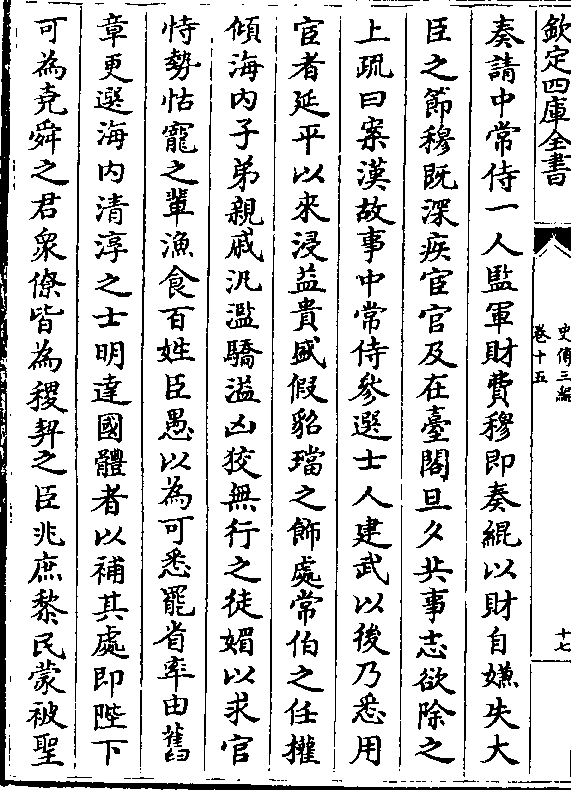 欽定四庫全書
史傳三編
卷十五
十七
奏請中常侍一人監軍財費穆即奏緄以財自嫌失大
臣之節穆既深疾宦官及在臺閣旦夕共事志欲除之
上疏曰案漢故事中常侍參選士人建武以後乃悉用
宦者延平以來浸益貴盛假貂璫之飾處常伯之任權
傾海內子弟親戚汎濫驕溢凶狡無行之徒媚以求官
恃勢怙寵之輩漁食百姓臣愚以為可悉罷省率由舊
章更選海內清淳之士明達國體者以補其處即陛下
可為堯舜之君衆僚皆為稷契之臣兆庶黎民蒙被聖